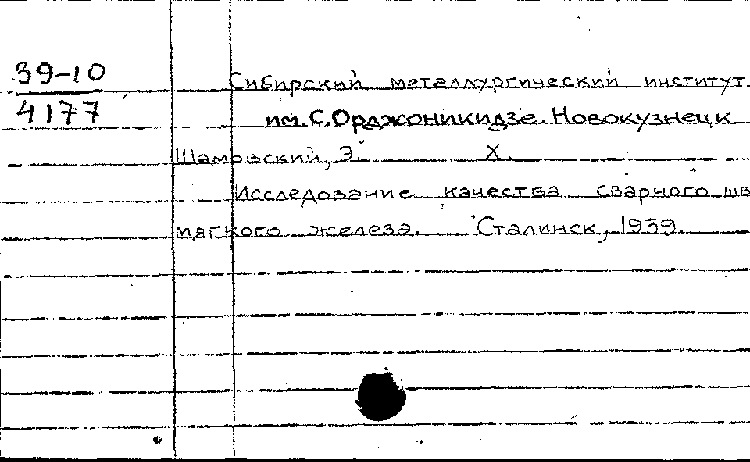 39-10
4177
Сибирский металлургический институт
им. С. Орджоникидзе. Новокузнецк
Шамовский, Э. Х.
Исследование качества сварного шв
мягкого железа. Сталинск, 1939.